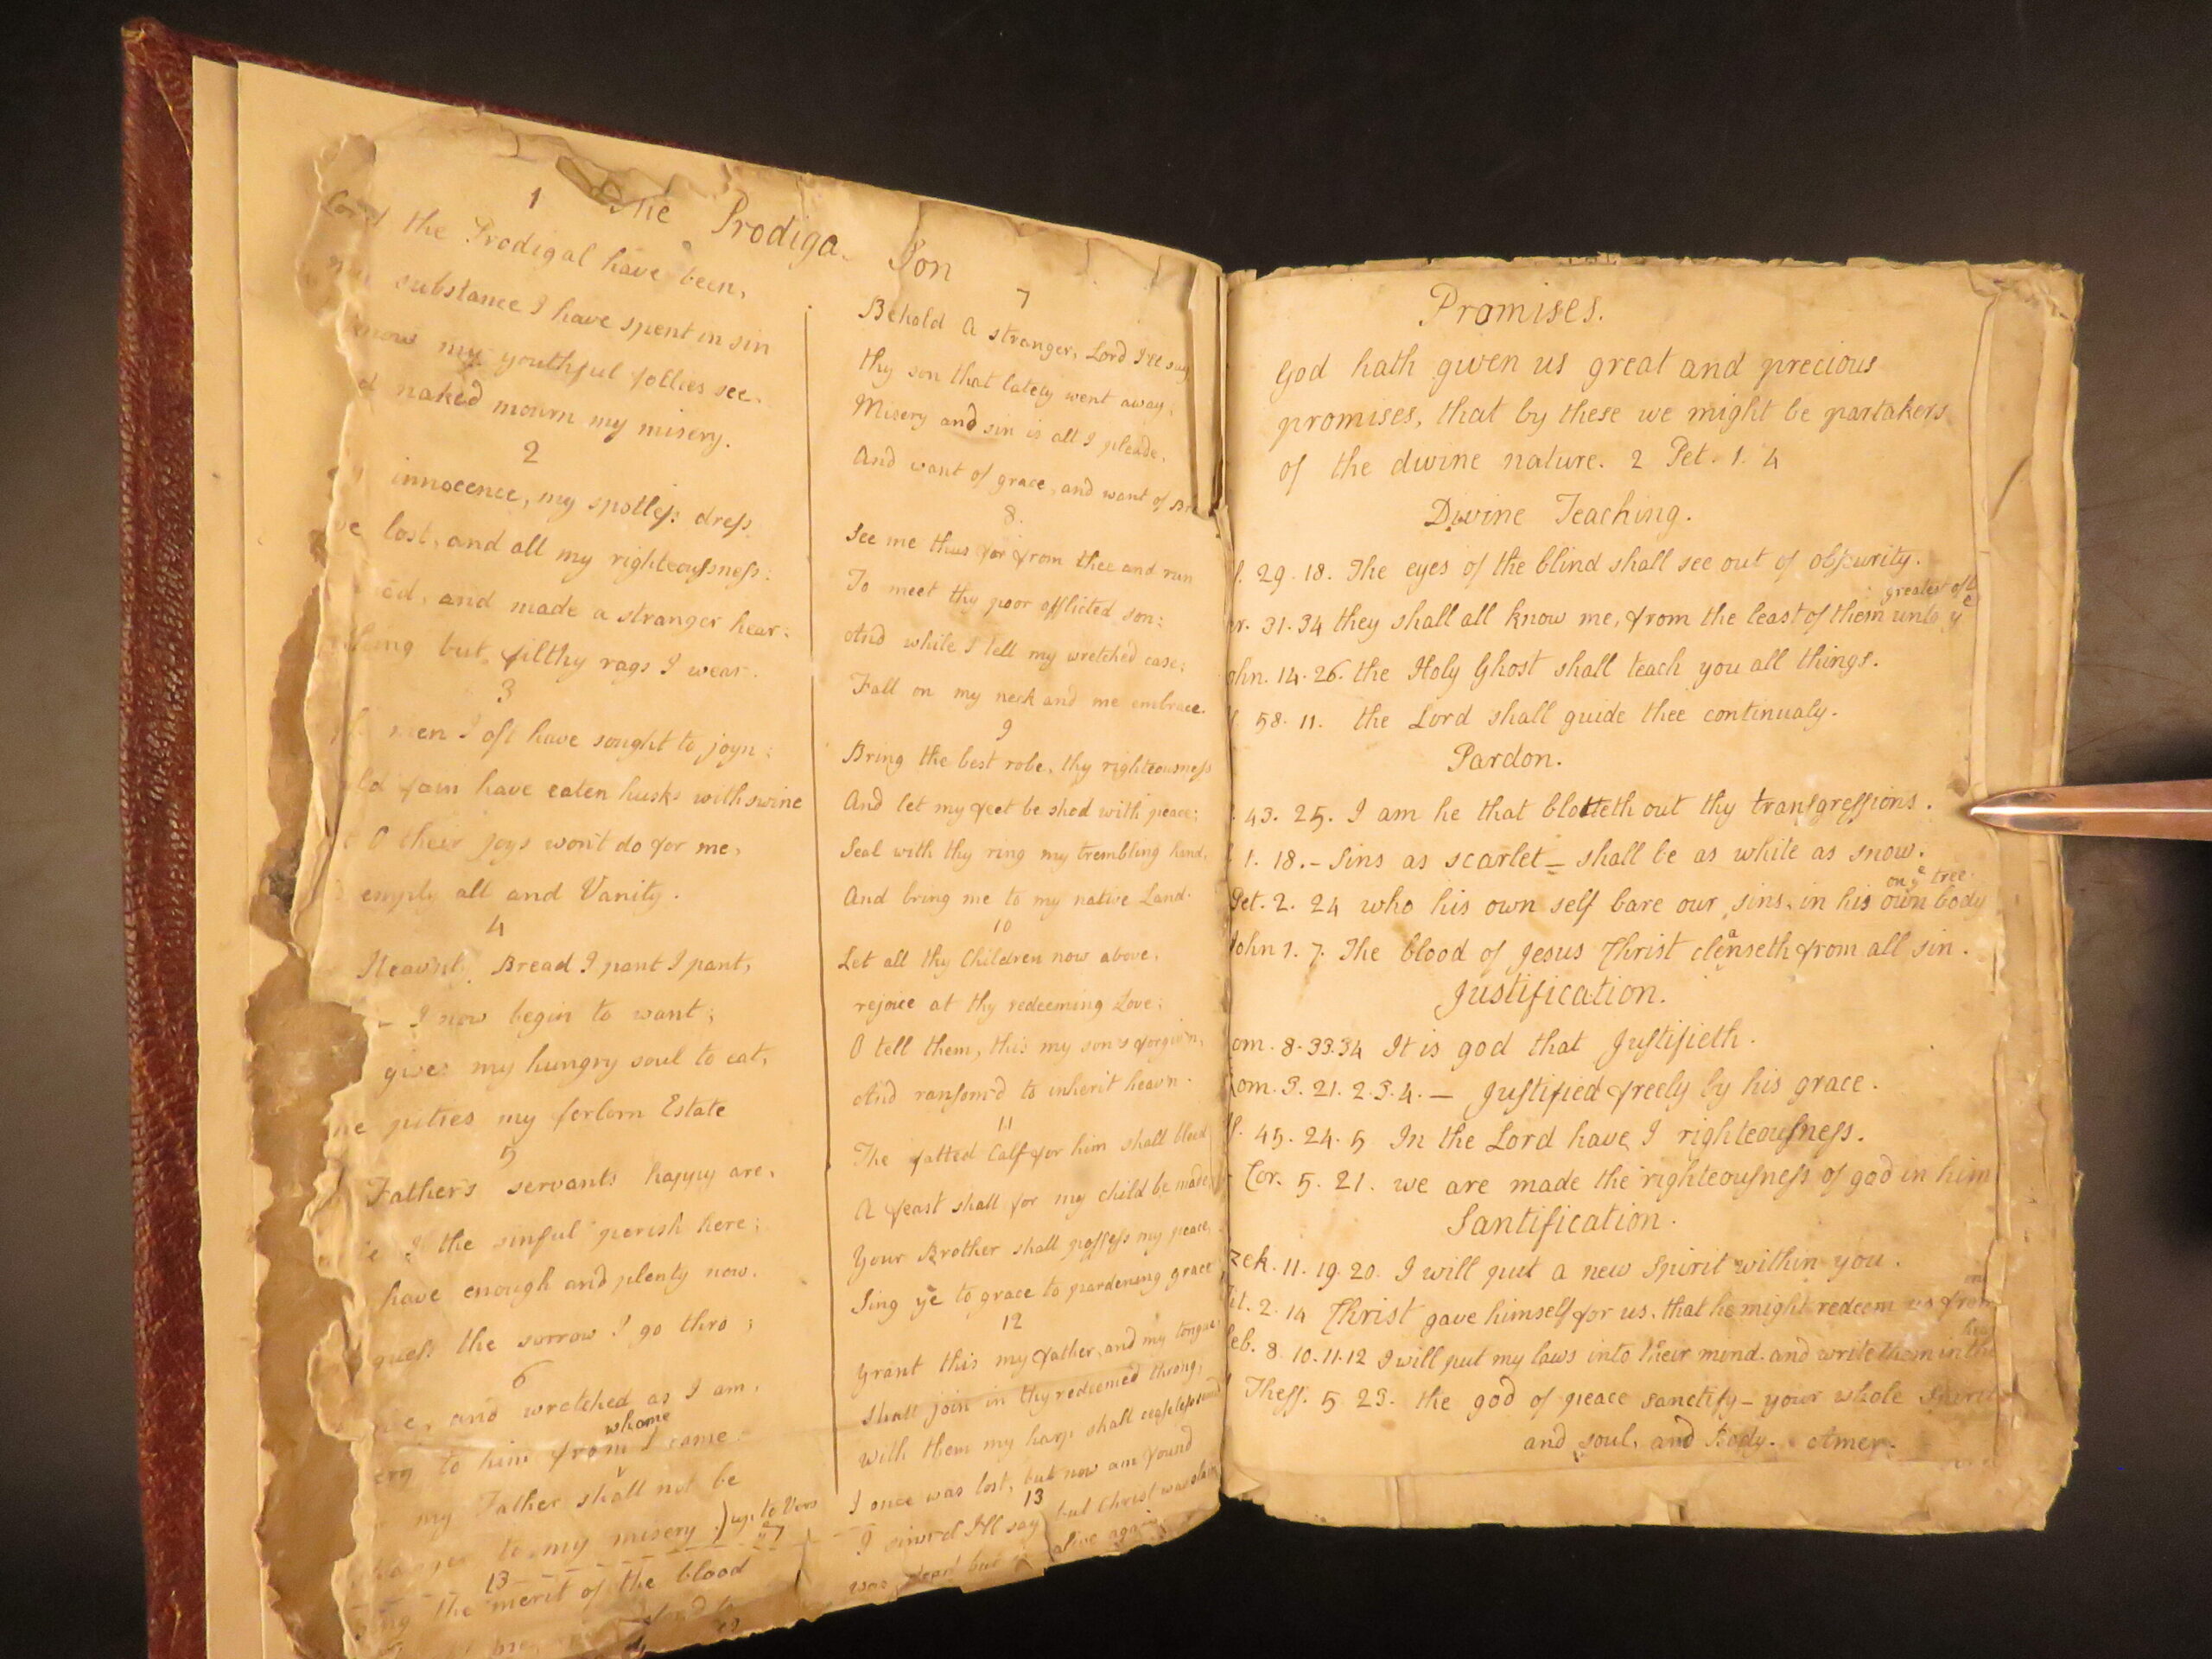 The Prodiga Son
1
Lord the Prodigal have been,
substance I have spent in sin
know my youthful follies see.
d naked mourn my misery.
2
innocence, my spotless dress
ve lost, and all my righteousness:
ed, and made a stranger hear.
thing but filthy rags I wear.
3
men I oft have sought to joyn;
ld fain have eaten husks with swine
O their joys won't do for me,
empty all and Vanity.
4
Heav'nly Bread I pant I pant,
I now begin to want;
gives my hungry soul to eat,
ne pities my forlorn Estate
5
Father's servants happy are,
I the sinful perish here;
have enough and plenty now.
guess the sorrow I go thro;
6
and wretched as I am,
whome
ery to him from I came
my Father shall not be
to my misery. up to Vers 7
13
the merit of the blood
7
Behold A stranger, Lord I'll say
thy son that lately went away;
Misery and sin is all I pleade,
And want of grace, and want of Br
8.
See me thus far from thee and run
To meet thy poor afflicted son:
And while I tell my wretched case;
Fall on my neck and me embrace.
9
Bring the best robe, thy righteousness
And let my feet be shod with peace;
Seal with thy ring my trembling hand,
And bring me to my native Land.
10
Let all thy Children now above,
rejoice at thy redeeming Love;
O tell them, this my son's forgiv'n,
And ransom'd to inherit heav'n.
11
The fatted Calf for him shall bleed
A feast shall for my child be made
Your Brother shall possess my peace,
Sing ye to grace to pardening grace
12
Grant this my father, and my tongue
shall join in thy redeemed throng,
with them my harp shall ceaseless sound
I once was lost, but now am found
13
I sinn'd I'll say but Christ was slain
was dead but alive again
Promises.
God hath given us great and precious
promises, that by these we might be partakers
of the divine nature. 2 Pet. 1. 4
Divine Teaching.
. 29. 18. The eyes of the blind shall see out of obscurity.
greatest of t
r. 31. 34 they shall all know me, from the least of them unto ye
ohn. 14. 26. the Holy Ghost shall teach you all things.
58. 11. the Lord shall guide thee continualy.
Pardon.
43. 25. I am he that blotteth out thy transgressions.
1. 18. – Sins as scarlet – shall be as white as snow.
on ye tree.
Pet. 2. 24 who his own self bare our sins, in his own body
John 1. 7. The blood of Jesus Christ cleanseth from all sin.
Justification.
om. 8. 33.34 It is god that Justifieth.
Rom. 3. 21. 2.3.4. – Justified freely by his grace.
. 45. 24. 5 In the Lord have I righteousness.
Cor. 5. 21. we are made the righteousness of god in him
Santification.
zek. 11. 19. 20. I will put a new Spirit within you.
it. 2. 14 Christ gave himself for us, that he might redeem us from
eb. 8. 10. 11.12 I will put my laws into their mind. and write them in the
Thess. 5 23. the god of peace sanctify – your whole Spirit
and soul, and Body. Amen.